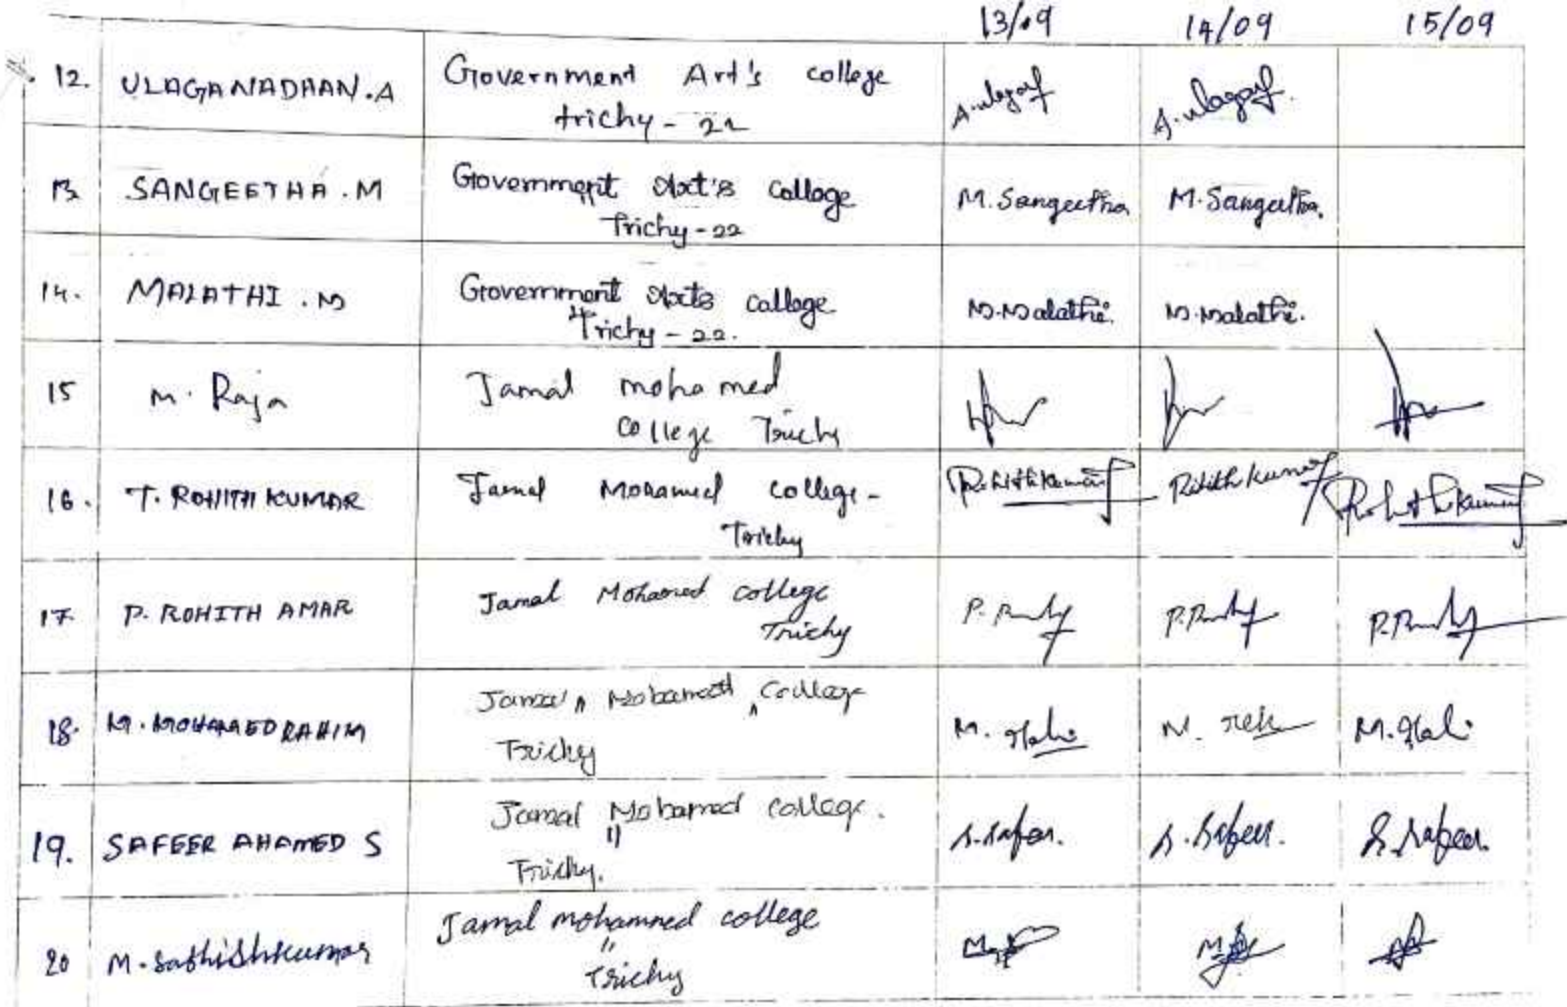 13/09 14/09 15/09
12. ULAGANADHAN.A Government Art's college A.ulagaf A.ulagaf.
trichy - 22
13 SANGEETHA.M Government Art's college M.Sangeetha M.Sangeetha.
Trichy-22
14. MALATHI.M Government Arts college M.Malathi. M.Malathi.
Trichy-22.
15 M. Raja Jamal mohamed
college Trichy
16. T. ROHITH KUMAR Jamal Mohamed college- Rohithkumar Rohith kumar Rohithkumar
Trichy
17 P. ROHITH AMAR Jamal Mohamed college
Trichy
18. M. MOHAMED RAHIM Jamal Mohamed College
Trichy
19. SAFEER AHAMED S Jamal Mohamed college. S.Safeer. S.Safeer. S.Safeer.
Trichy.
20 M. Sathishkumar Jamal mohammed college
Trichy